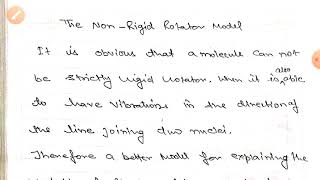 The Non-Rigid Rotator Model
It is obvious that a molecule can not
be strictly rigid rotator. When it is also able
to have Vibrations in the direction of
the line joining two nuclei.
Therefore a better Model for explaining the